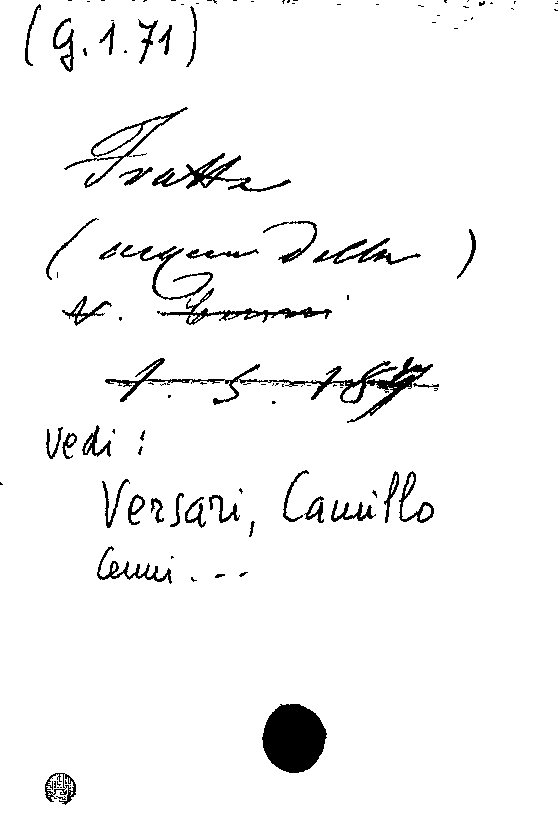 (G.1.71)
Fratta
(acqua della)
v. Cenni
1. 5. 187
vedi:
Versari, Camillo
Cenni...